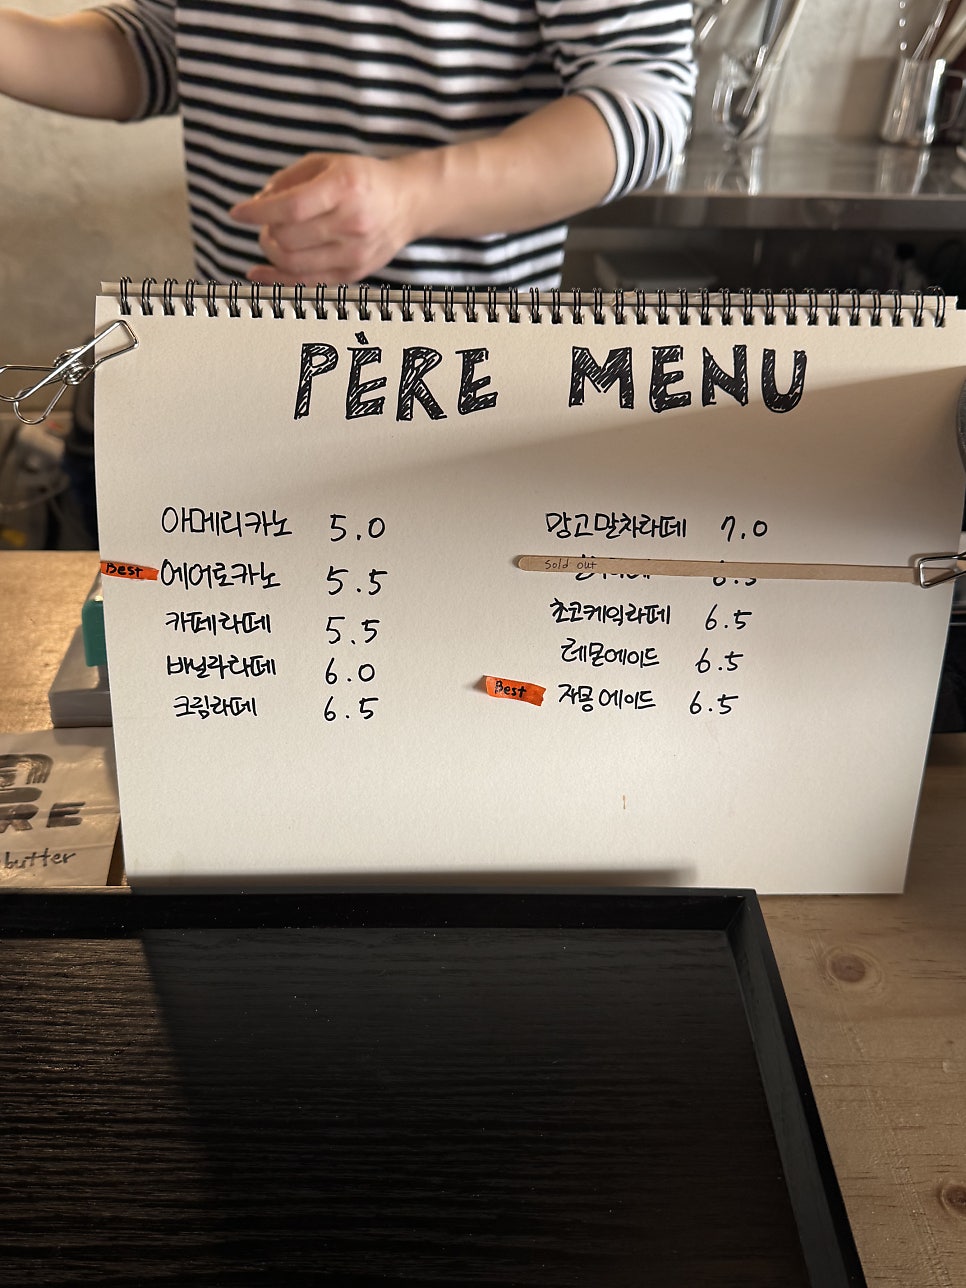 PÈRE MENU
아메리카노 5.0
Best 에어로카노 5.5
카페라떼 5.5
바닐라라떼 6.0
크림라떼 6.5
망고말차라떼 7.0
Sold out
초코케익라떼 6.5
레몬에이드 6.5
Best 자몽에이드 6.5
butter